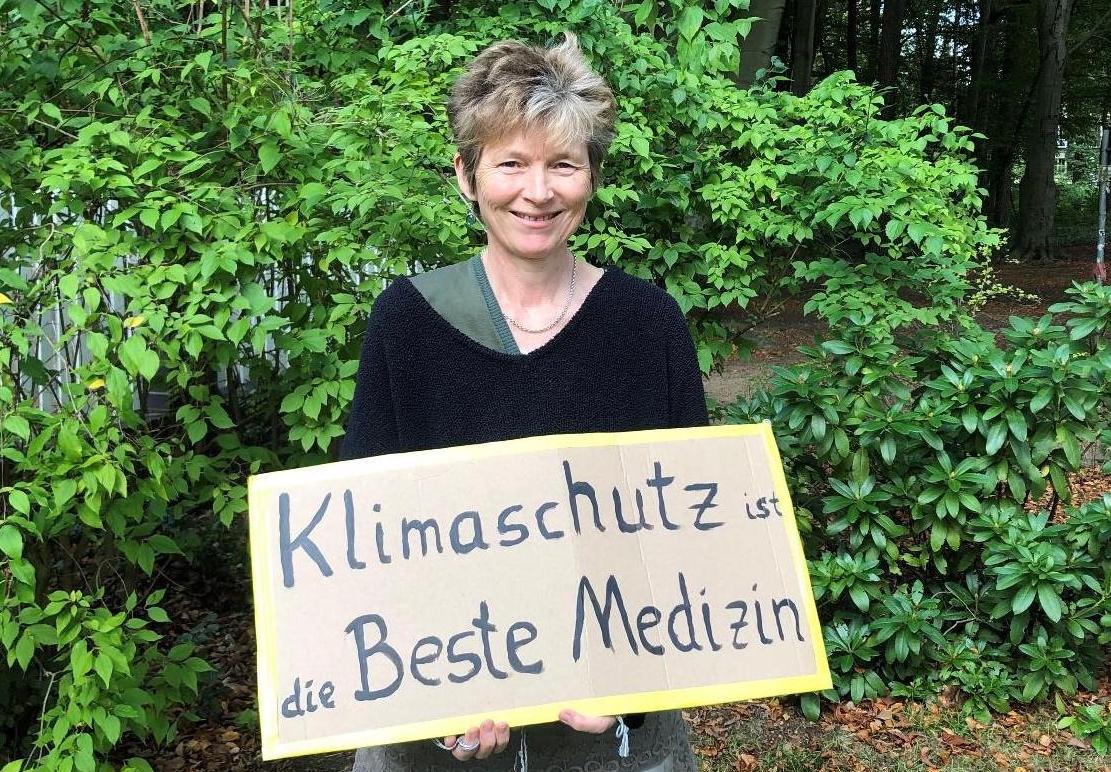 Klimaschutz ist
die Beste Medizin